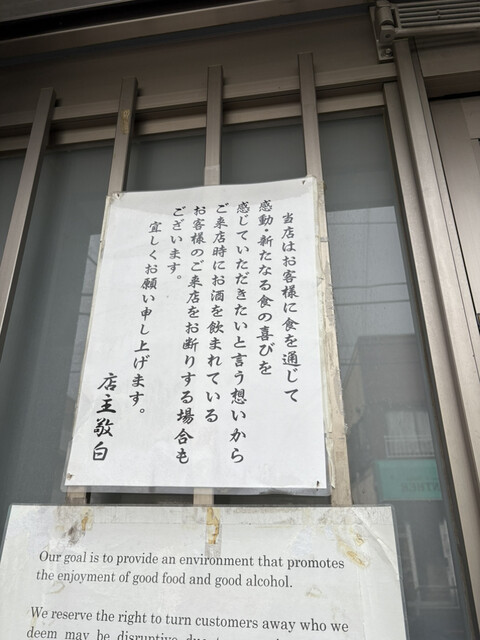 当店はお客様に食を通じて
感動・新たなる食の喜びを
感じていただきたいと言う想いから
ご来店時にお酒を飲まれている
お客様のご来店をお断りする場合も
ございます。
宜しくお願い申し上げます。
店主敬白
Our goal is to provide an environment that promotes
the enjoyment of good food and good alcohol.
We reserve the right to turn customers away who we
deem may be disruptive due to